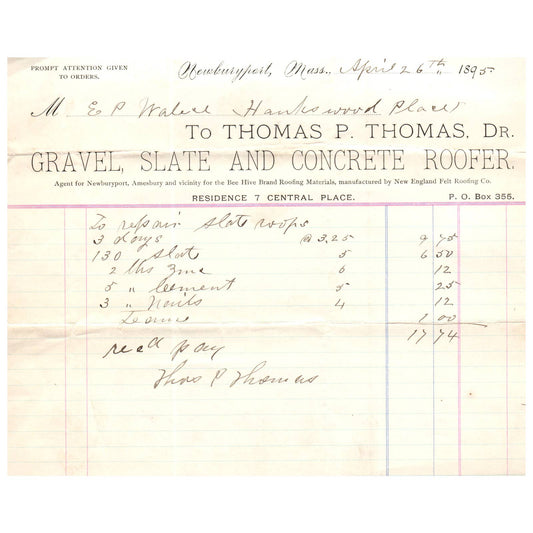 PROMPT ATTENTION GIVEN
TO ORDERS.
Newburyport, Mass., April 26th, 1895
M E P Hankswood Place
To THOMAS P. THOMAS, DR.
GRAVEL, SLATE AND CONCRETE ROOFER.
Agent for Newburyport, Amesbury and vicinity for the Bee Hive Brand Roofing Materials, manufactured by New England Felt Roofing Co.
RESIDENCE 7 CENTRAL PLACE. P. O. Box 355.
To repair slate roofs
3 days @ 3.25 9 75
130 slat 5 6 50
2 lbs zinc 6 12
5 " Cement 5 25
3 " Nails 4 12
Teame 1 00
17 74
recd pay
Thos P Thomas